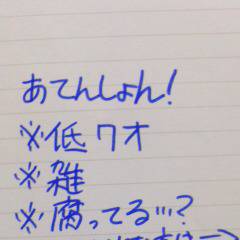 あてんしょん!
※低クオ
※雑
※腐ってる…?